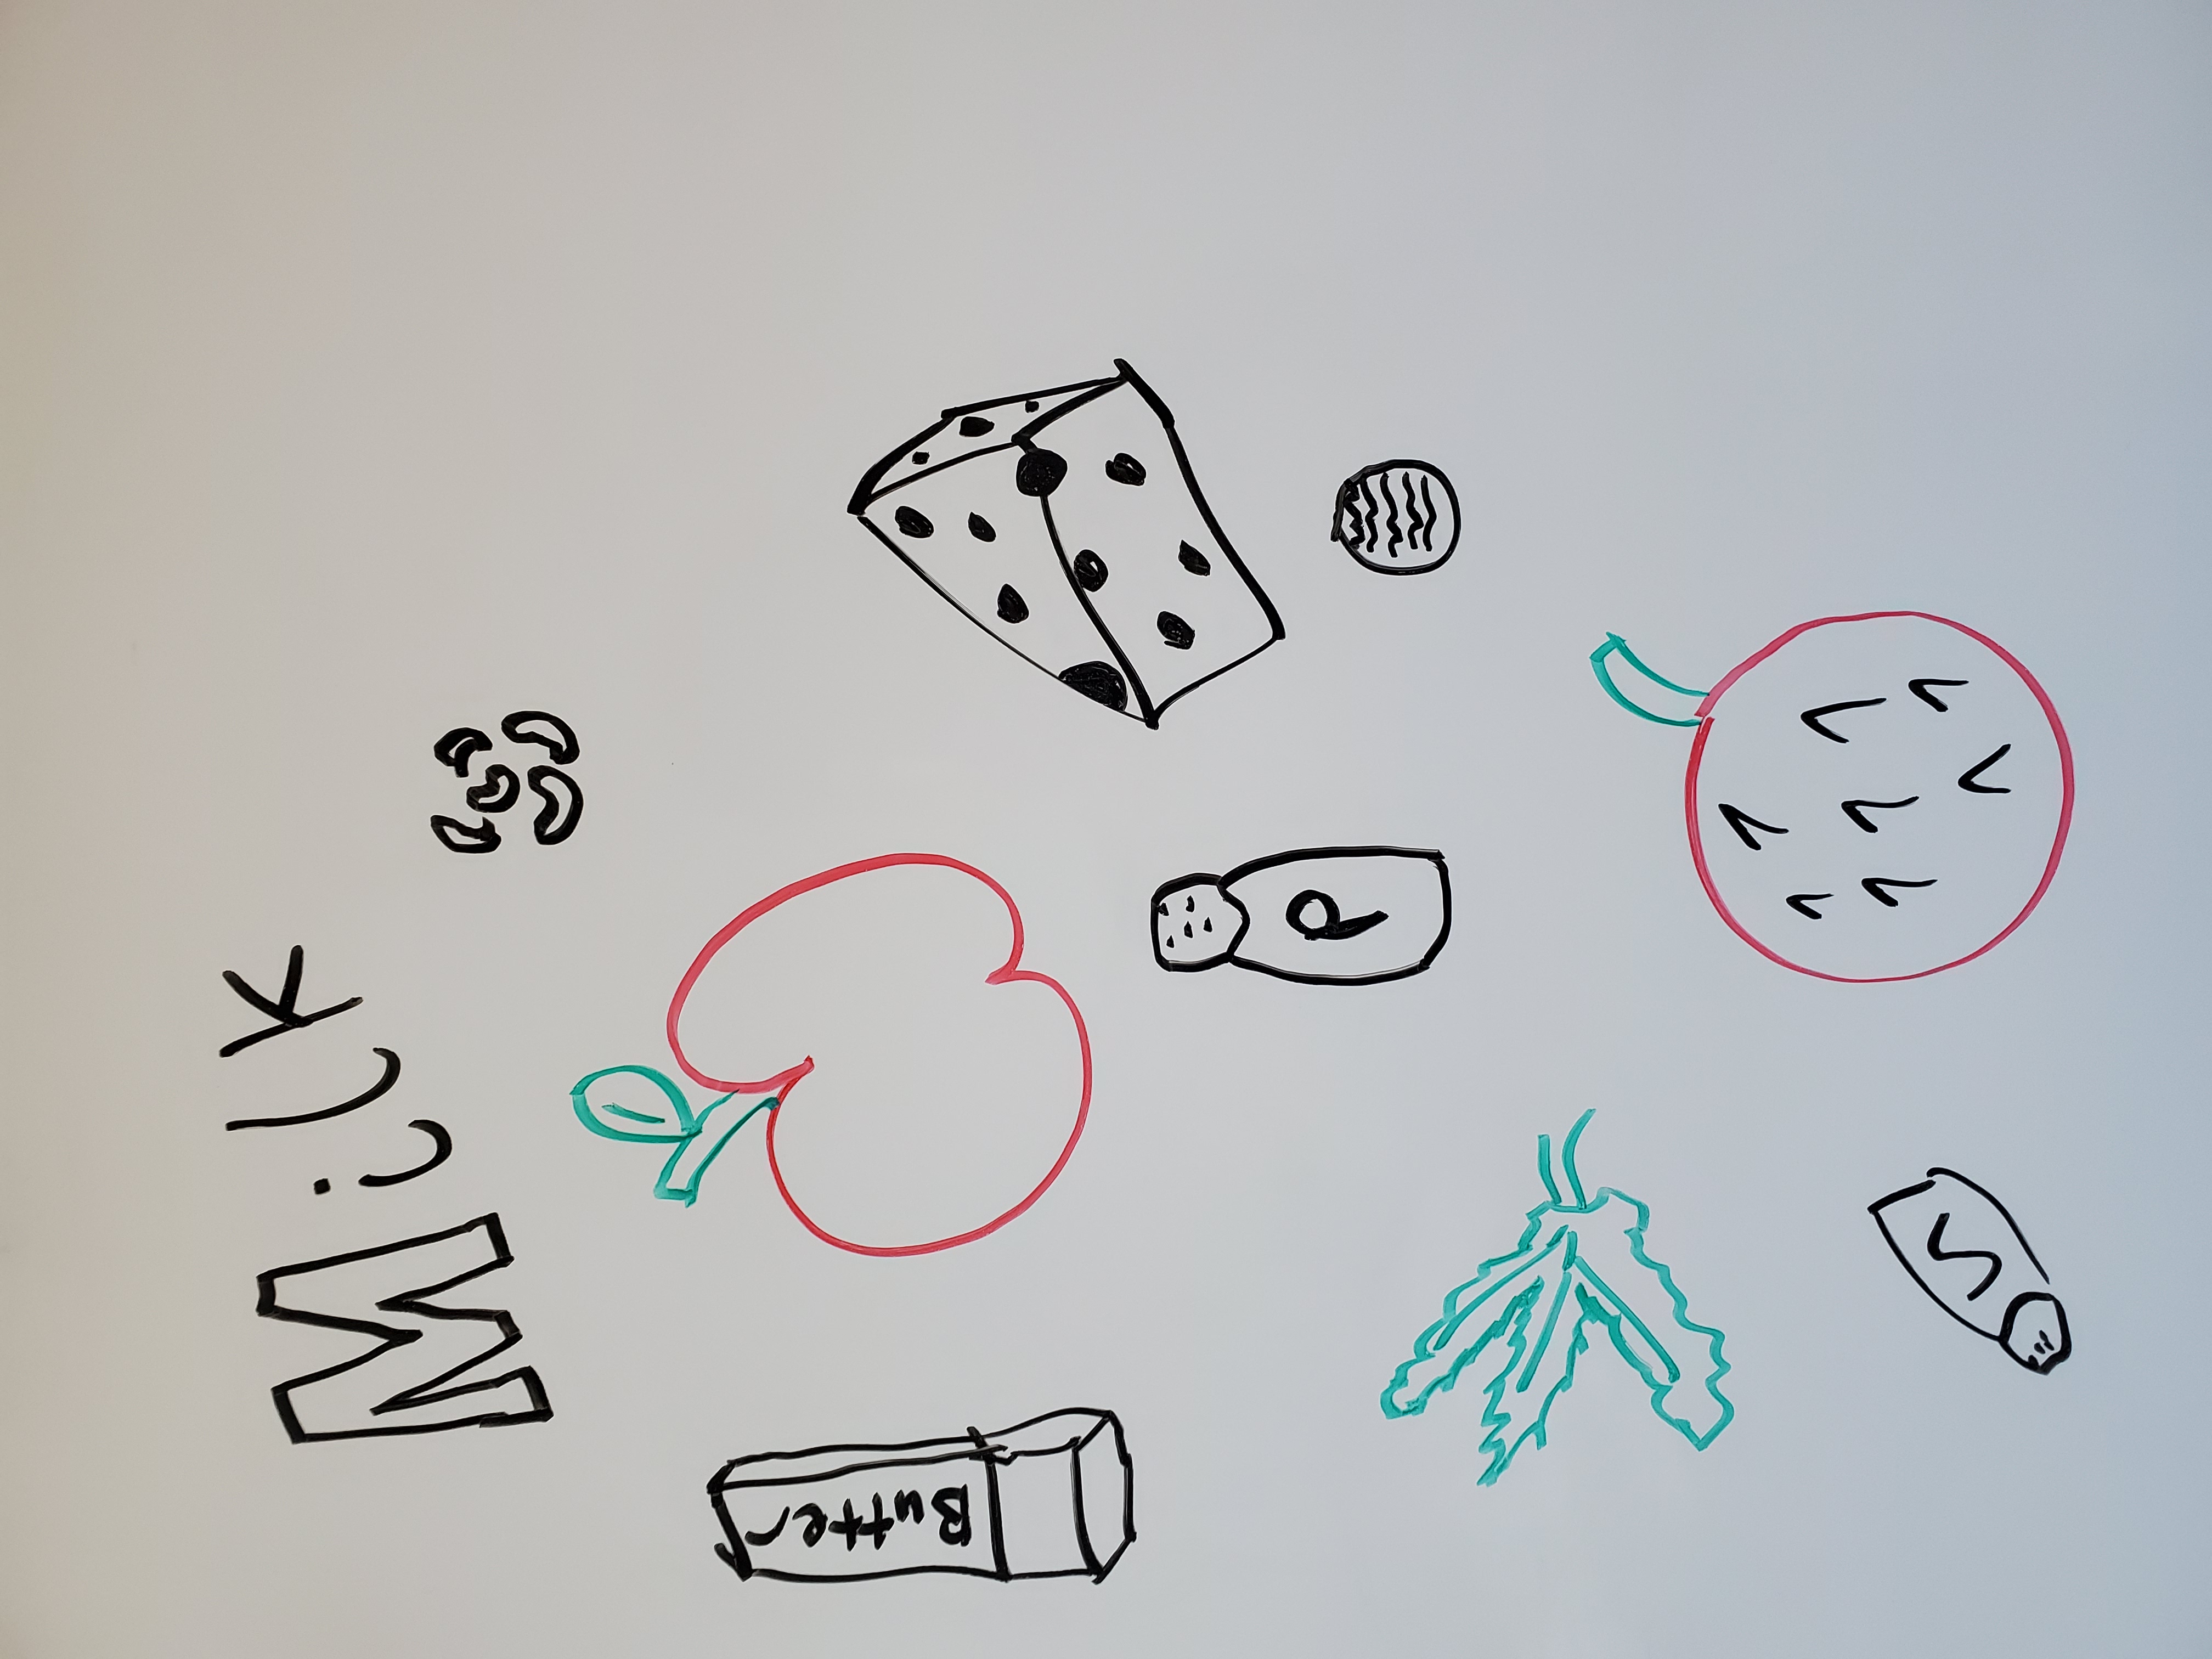 Milk
Butter
P
S